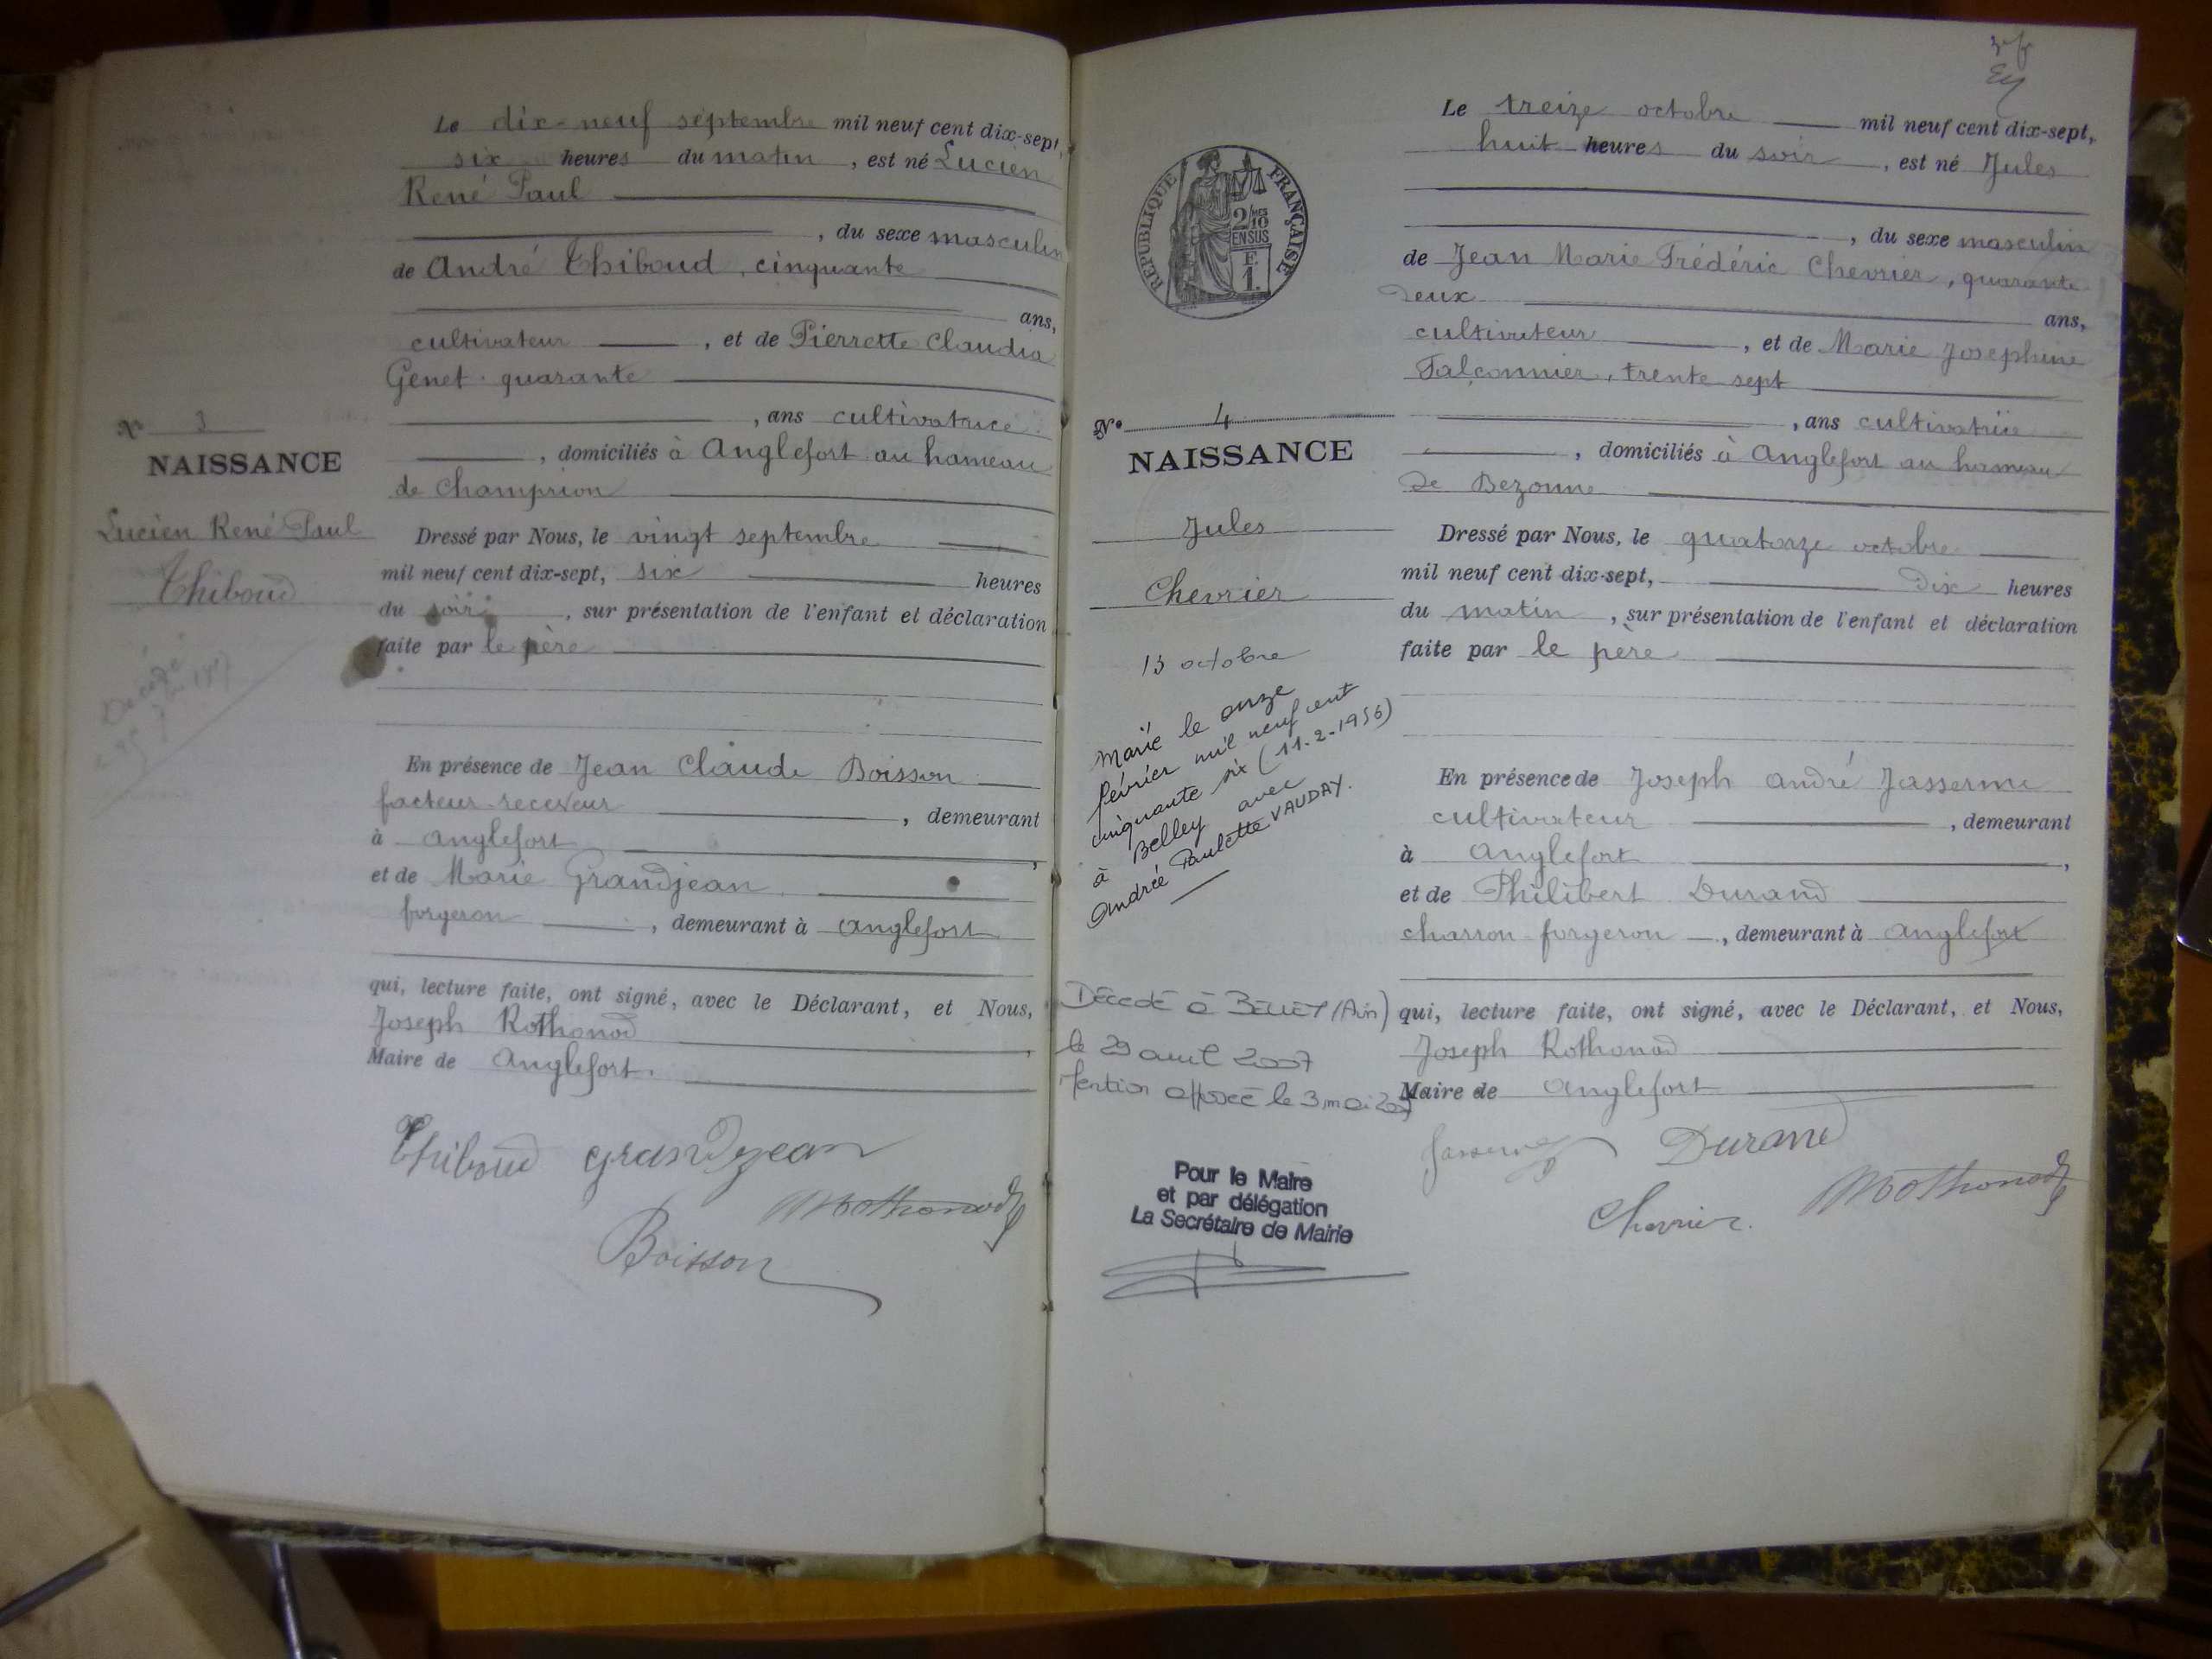 Le dix-neuf septembre mil neuf cent dix-sept,
six heures du matin, est né Lucien
René Paul
, du sexe masculin
de André Thiboud, cinquante
ans,
cultivateur, et de Pierrette Claudia
Genet. quarante
, ans cultivatrice
, domiciliés à Anglefort au hameau
de Champrion
N° 3
NAISSANCE
Lucien René Paul
Thiboud
Décédé
Dressé par Nous, le vingt septembre
mil neuf cent dix-sept, six heures
du soir, sur présentation de l'enfant et déclaration
faite par le père
En présence de Jean Claude Boisson
facteur-receveur, demeurant
à Anglefort,
et de Marie Grandjean
forgeron, demeurant à Anglefort
qui, lecture faite, ont signé, avec le Déclarant, et Nous,
Joseph Rothonod,
Maire de Anglefort.
Thiboud Grandjean
Rothonod
Boisson
RÉPUBLIQUE FRANÇAISE
2/10 MES
EN SUS
F.
1.
N° 4
NAISSANCE
Jules
Chevrier
13 octobre
Marié le onze
février mil neuf cent
cinquante six (11-2-1956)
à Belley avec
Andrée Paulette VAUDAY.
Décédé à BELLEY (Ain)
le 29 avril 2007
Mention apposée le 3 mai 2007
Pour le Maire
et par délégation
La Secrétaire de Mairie
Le treize octobre mil neuf cent dix-sept,
huit heures du soir, est né Jules
, du sexe masculin
de Jean Marie Frédéric Chevrier, quarante
deux ans,
cultivateur, et de Marie Josephine
Falconnier, trente sept
, ans cultivatrice
, domiciliés à Anglefort au hameau
de Bezonne
Dressé par Nous, le quatorze octobre
mil neuf cent dix-sept, dix heures
du matin, sur présentation de l'enfant et déclaration
faite par le père
En présence de Joseph André Jasserme
cultivateur, demeurant
à Anglefort,
et de Philibert Durand
charron-forgeron, demeurant à Anglefort
qui, lecture faite, ont signé, avec le Déclarant, et Nous,
Joseph Rothonod
Maire de Anglefort
Jasserme Durand
Chevrier. Rothonod